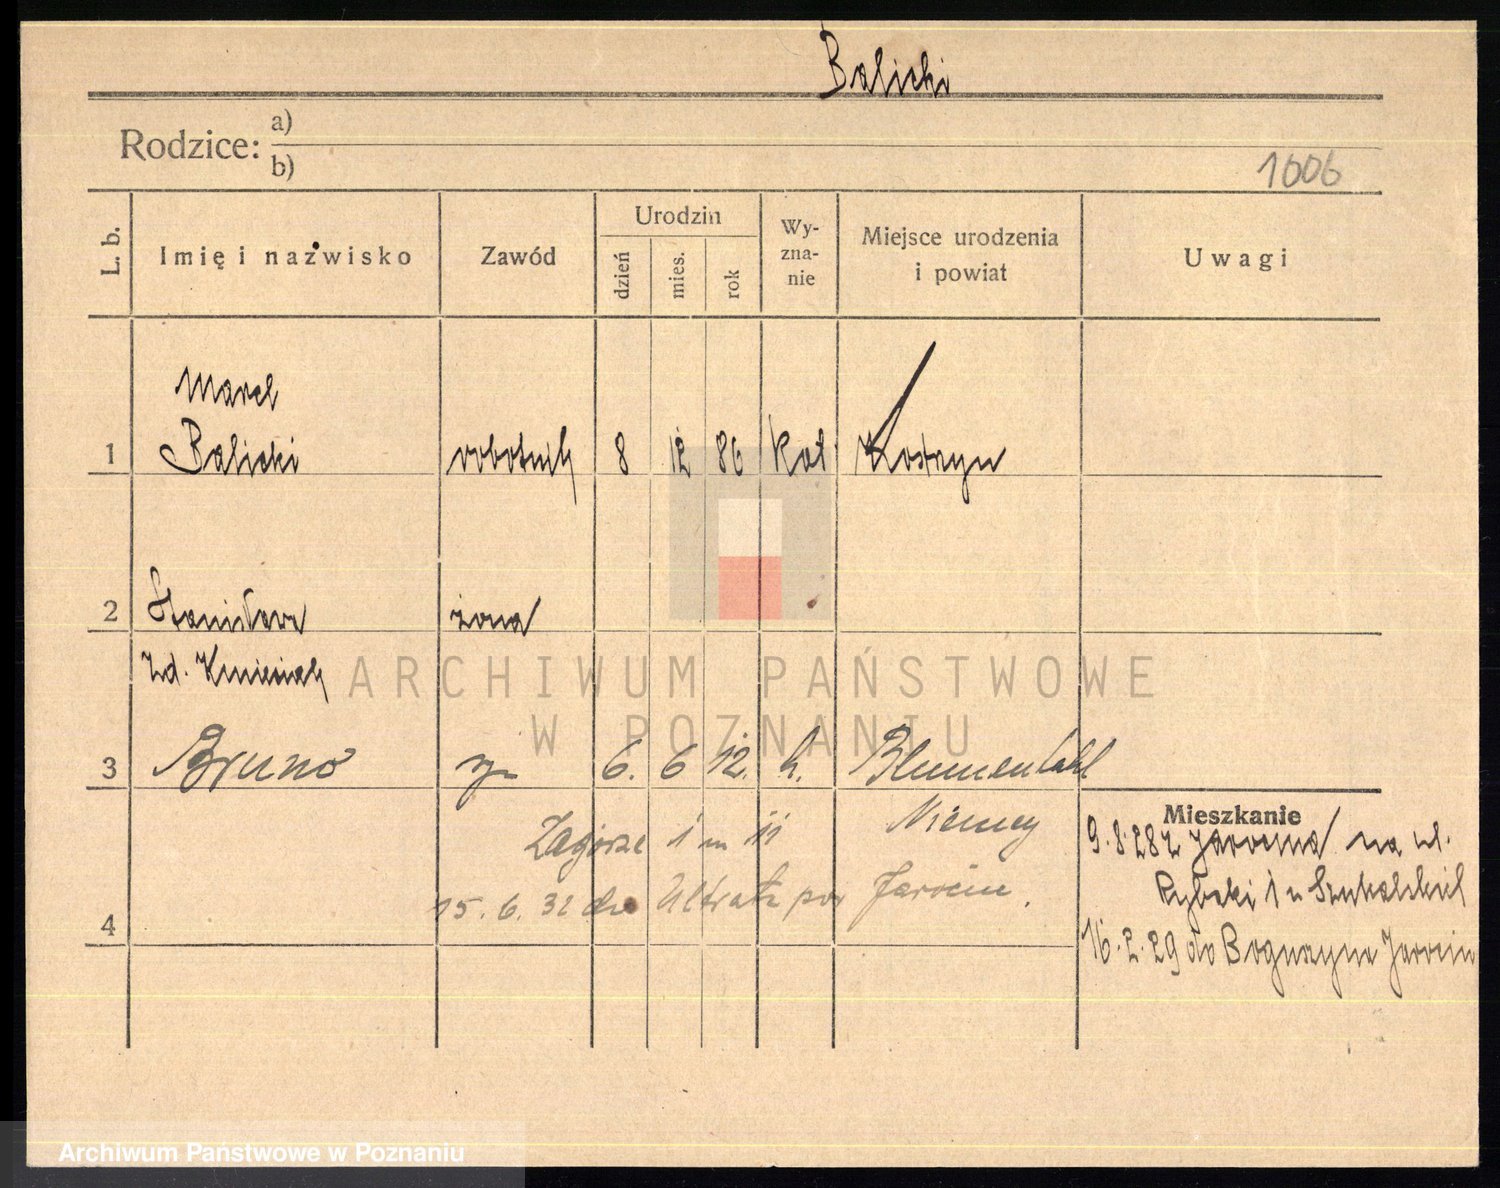 Balicki
Rodzice: a)
b)
1006
L. b.
Imię i nazwisko
Zawód
Urodzin
dzień
mies.
rok
Wy-
zna-
nie
Miejsce urodzenia
i powiat
Uwagi
Marcel
1 Balicki robotnik 8 12 86 kat Kostrzyn
2 Stanisława żona
zd. Kmieciak
3 Bruno syn 6. 6 12. k. Blumenthal
Niemcy
Mieszkanie
9.8.28 z Jarocina na ul.
Rybaki 1 u
16.2.29 do Jarocin
Zagórze 1 m 11
15.6.32 do Utrata pow Jarocin.
4
ARCHIWUM PAŃSTWOWE
W POZNANIU
Archiwum Państwowe w Poznaniu